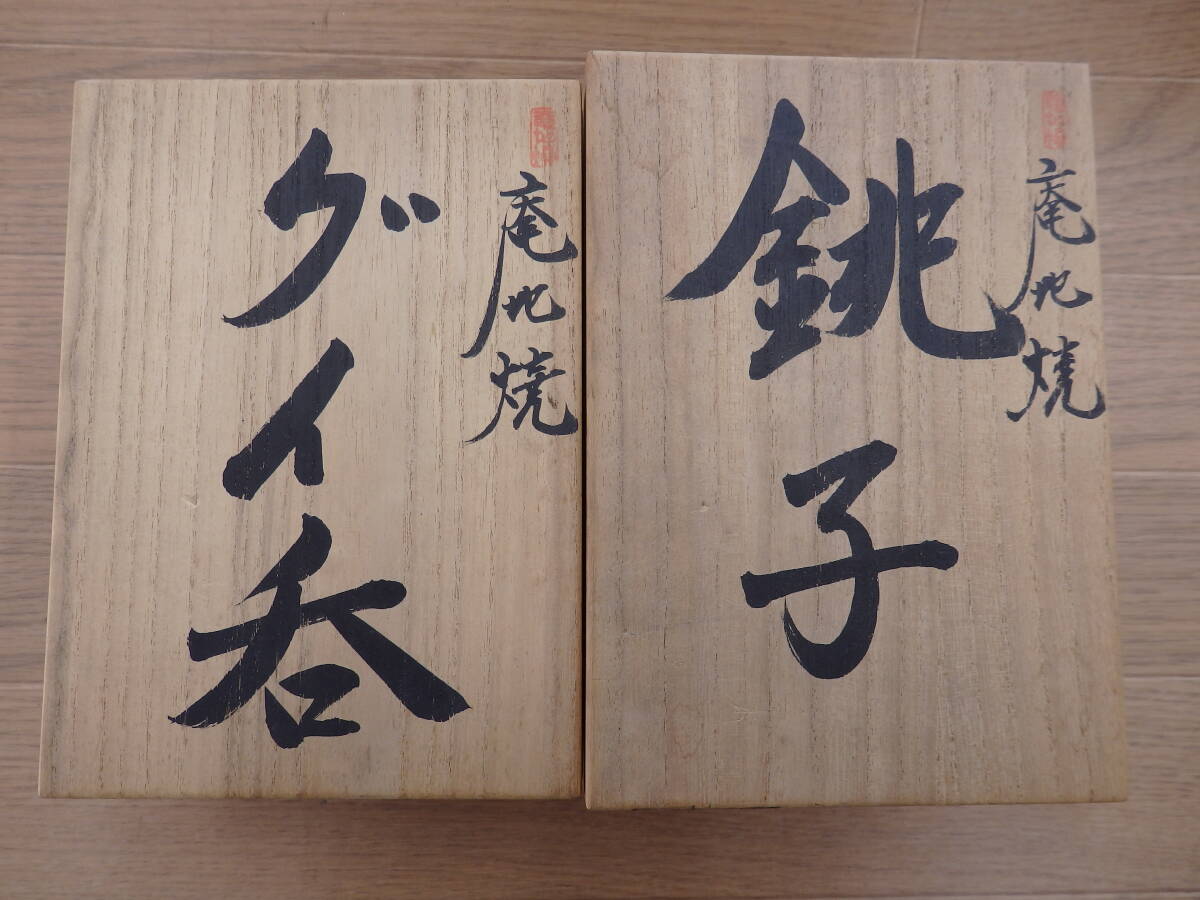 庵地焼
グイ呑
庵地焼
銚子